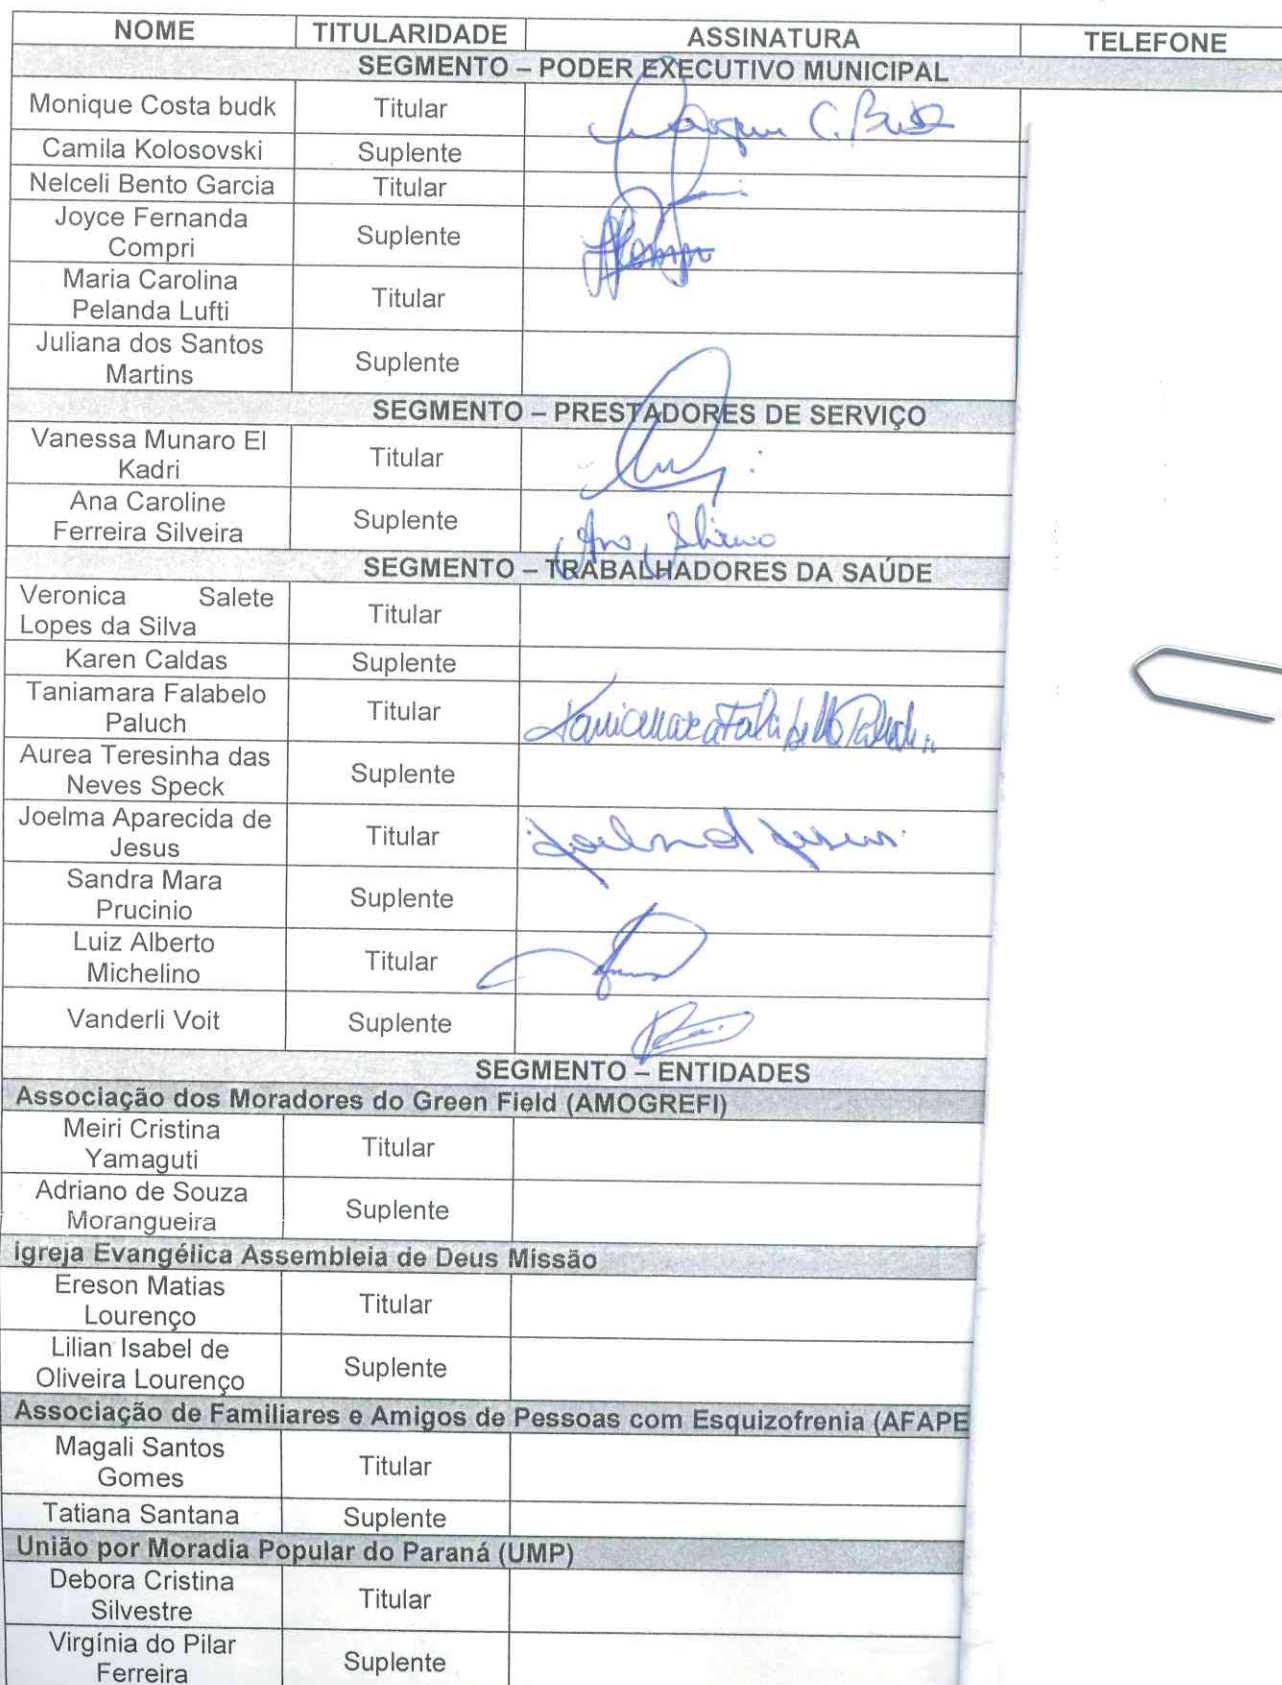 NOME TITULARIDADE ASSINATURA TELEFONE
SEGMENTO – PODER EXECUTIVO MUNICIPAL
Monique Costa budk Titular C. Budk
Camila Kolosovski Suplente
Nelceli Bento Garcia Titular
Joyce Fernanda
Compri Suplente
Maria Carolina
Pelanda Lufti Titular
Juliana dos Santos
Martins Suplente
SEGMENTO – PRESTADORES DE SERVIÇO
Vanessa Munaro El
Kadri Titular
Ana Caroline
Ferreira Silveira Suplente Ana
SEGMENTO – TRABALHADORES DA SAÚDE
Veronica Salete
Lopes da Silva Titular
Karen Caldas Suplente
Taniamara Falabelo
Paluch Titular Taniamara Falabello Paluch
Aurea Teresinha das
Neves Speck Suplente
Joelma Aparecida de
Jesus Titular Joelma Jesus
Sandra Mara
Prucinio Suplente
Luiz Alberto
Michelino Titular
Vanderli Voit Suplente
SEGMENTO – ENTIDADES
Associação dos Moradores do Green Field (AMOGREFI)
Meiri Cristina
Yamaguti Titular
Adriano de Souza
Morangueira Suplente
igreja Evangélica Assembleia de Deus Missão
Ereson Matias
Lourenço Titular
Lilian Isabel de
Oliveira Lourenço Suplente
Associação de Familiares e Amigos de Pessoas com Esquizofrenia (AFAPE
Magali Santos
Gomes Titular
Tatiana Santana Suplente
União por Moradia Popular do Paraná (UMP)
Debora Cristina
Silvestre Titular
Virgínia do Pilar
Ferreira Suplente